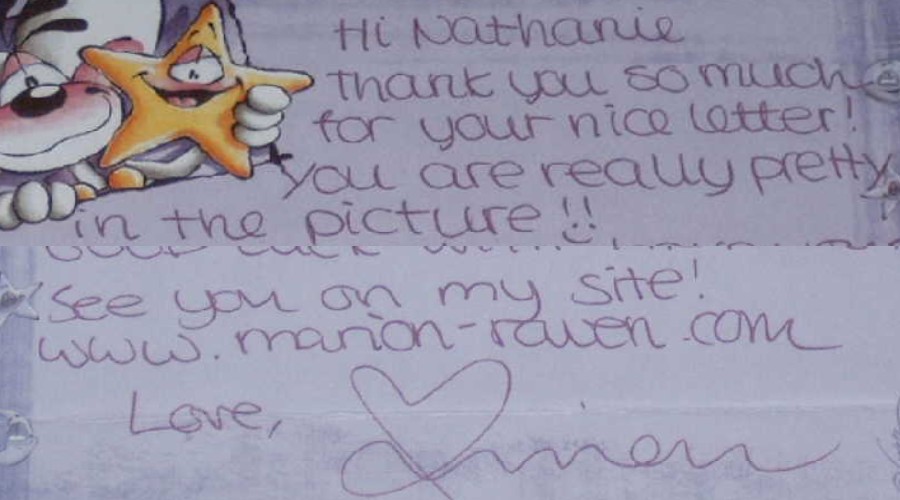 Hi Nathanie
Thank you so much
for your nice letter!
you are really pretty
in the picture!!
See you on my site!
www.marion-raven.com
Love,